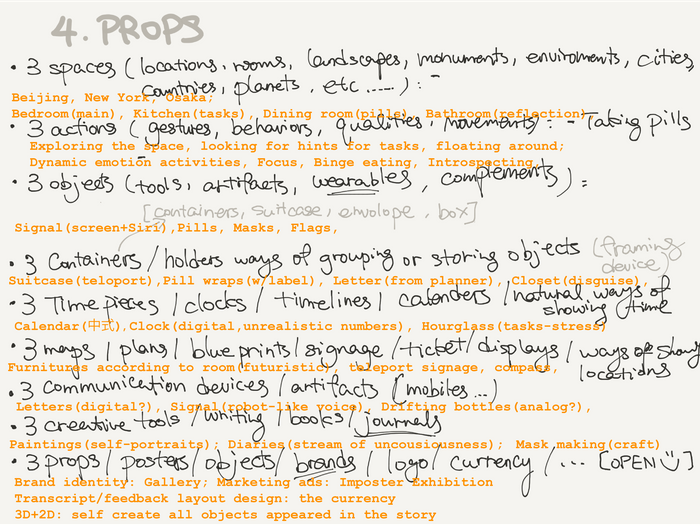 4. PROPS
• 3 spaces (locations, rooms, landscapes, monuments, enviroments, cities,
countries, planets, etc .....) : -
Beijing, New York, Osaka;
Bedroom(main), Kitchen(tasks), Dining room(pills), Bathroom(reflection)
• 3 actions (gestures, behaviors, qualities, movements) : - Taking pills
Exploring the space, looking for hints for tasks, floating around;
Dynamic emotion activities, Focus, Binge eating, Introspecting,
• 3 objects (tools, artifacts, wearables, complements) :
[containers, suitcase, envolope, box]
Signal(screen+Siri),Pills, Masks, Flags,
• 3 Containers/holders ways of grouping or storing objects (framing
device)
Suitcase(teloport),Pill wraps(w/label), Letter(from planner), Closet(disguise),
• 3 Time pieces / clocks / timelines / calenders / natural ways of
showing time
Calendar(中式),Clock(digital,unrealistic numbers), Hourglass(tasks-stress)
• 3 maps / plans / blue prints / signage / ticket / displays / ways of show
locations
Furnitures according to room(futuristic), teleport signage, compass,
• 3 communication devices / artifacts (mobiles ...)
Letters(digital?), Signal(robot-like voice), Drifting bottles(analog?),
• 3 creative tools / writing / books / journals
Paintings(self-portraits); Diaries(stream of uncousiousness); Mask making(craft)
• 3 props / posters / objects / brands / logo / currency / ... [OPEN]
Brand identity: Gallery; Marketing ads: Imposter Exhibition
Transcript/feedback layout design: the currency
3D+2D: self create all objects appeared in the story